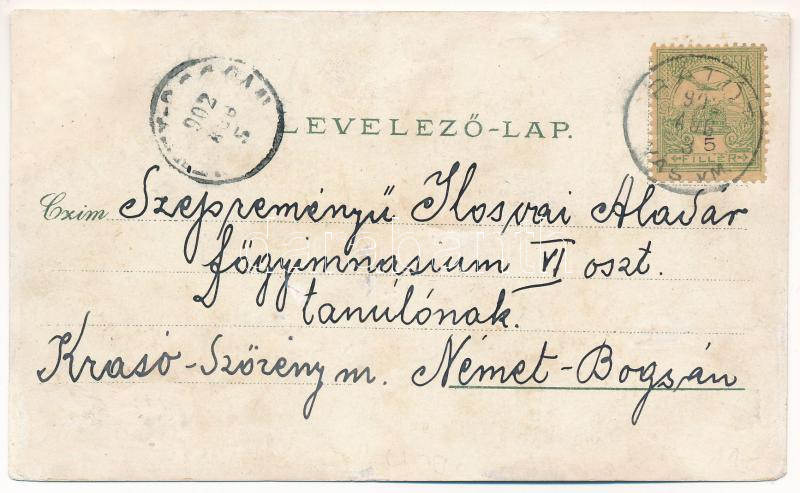 LEVELEZŐ-LAP.
902
AUG
5
5
FILLÉR
Czim Szepreményű Ilosvai Aladár
főgyimnásium VI oszt.
tanúlónak.
Krasó-Szörény m. Német-Bogsán